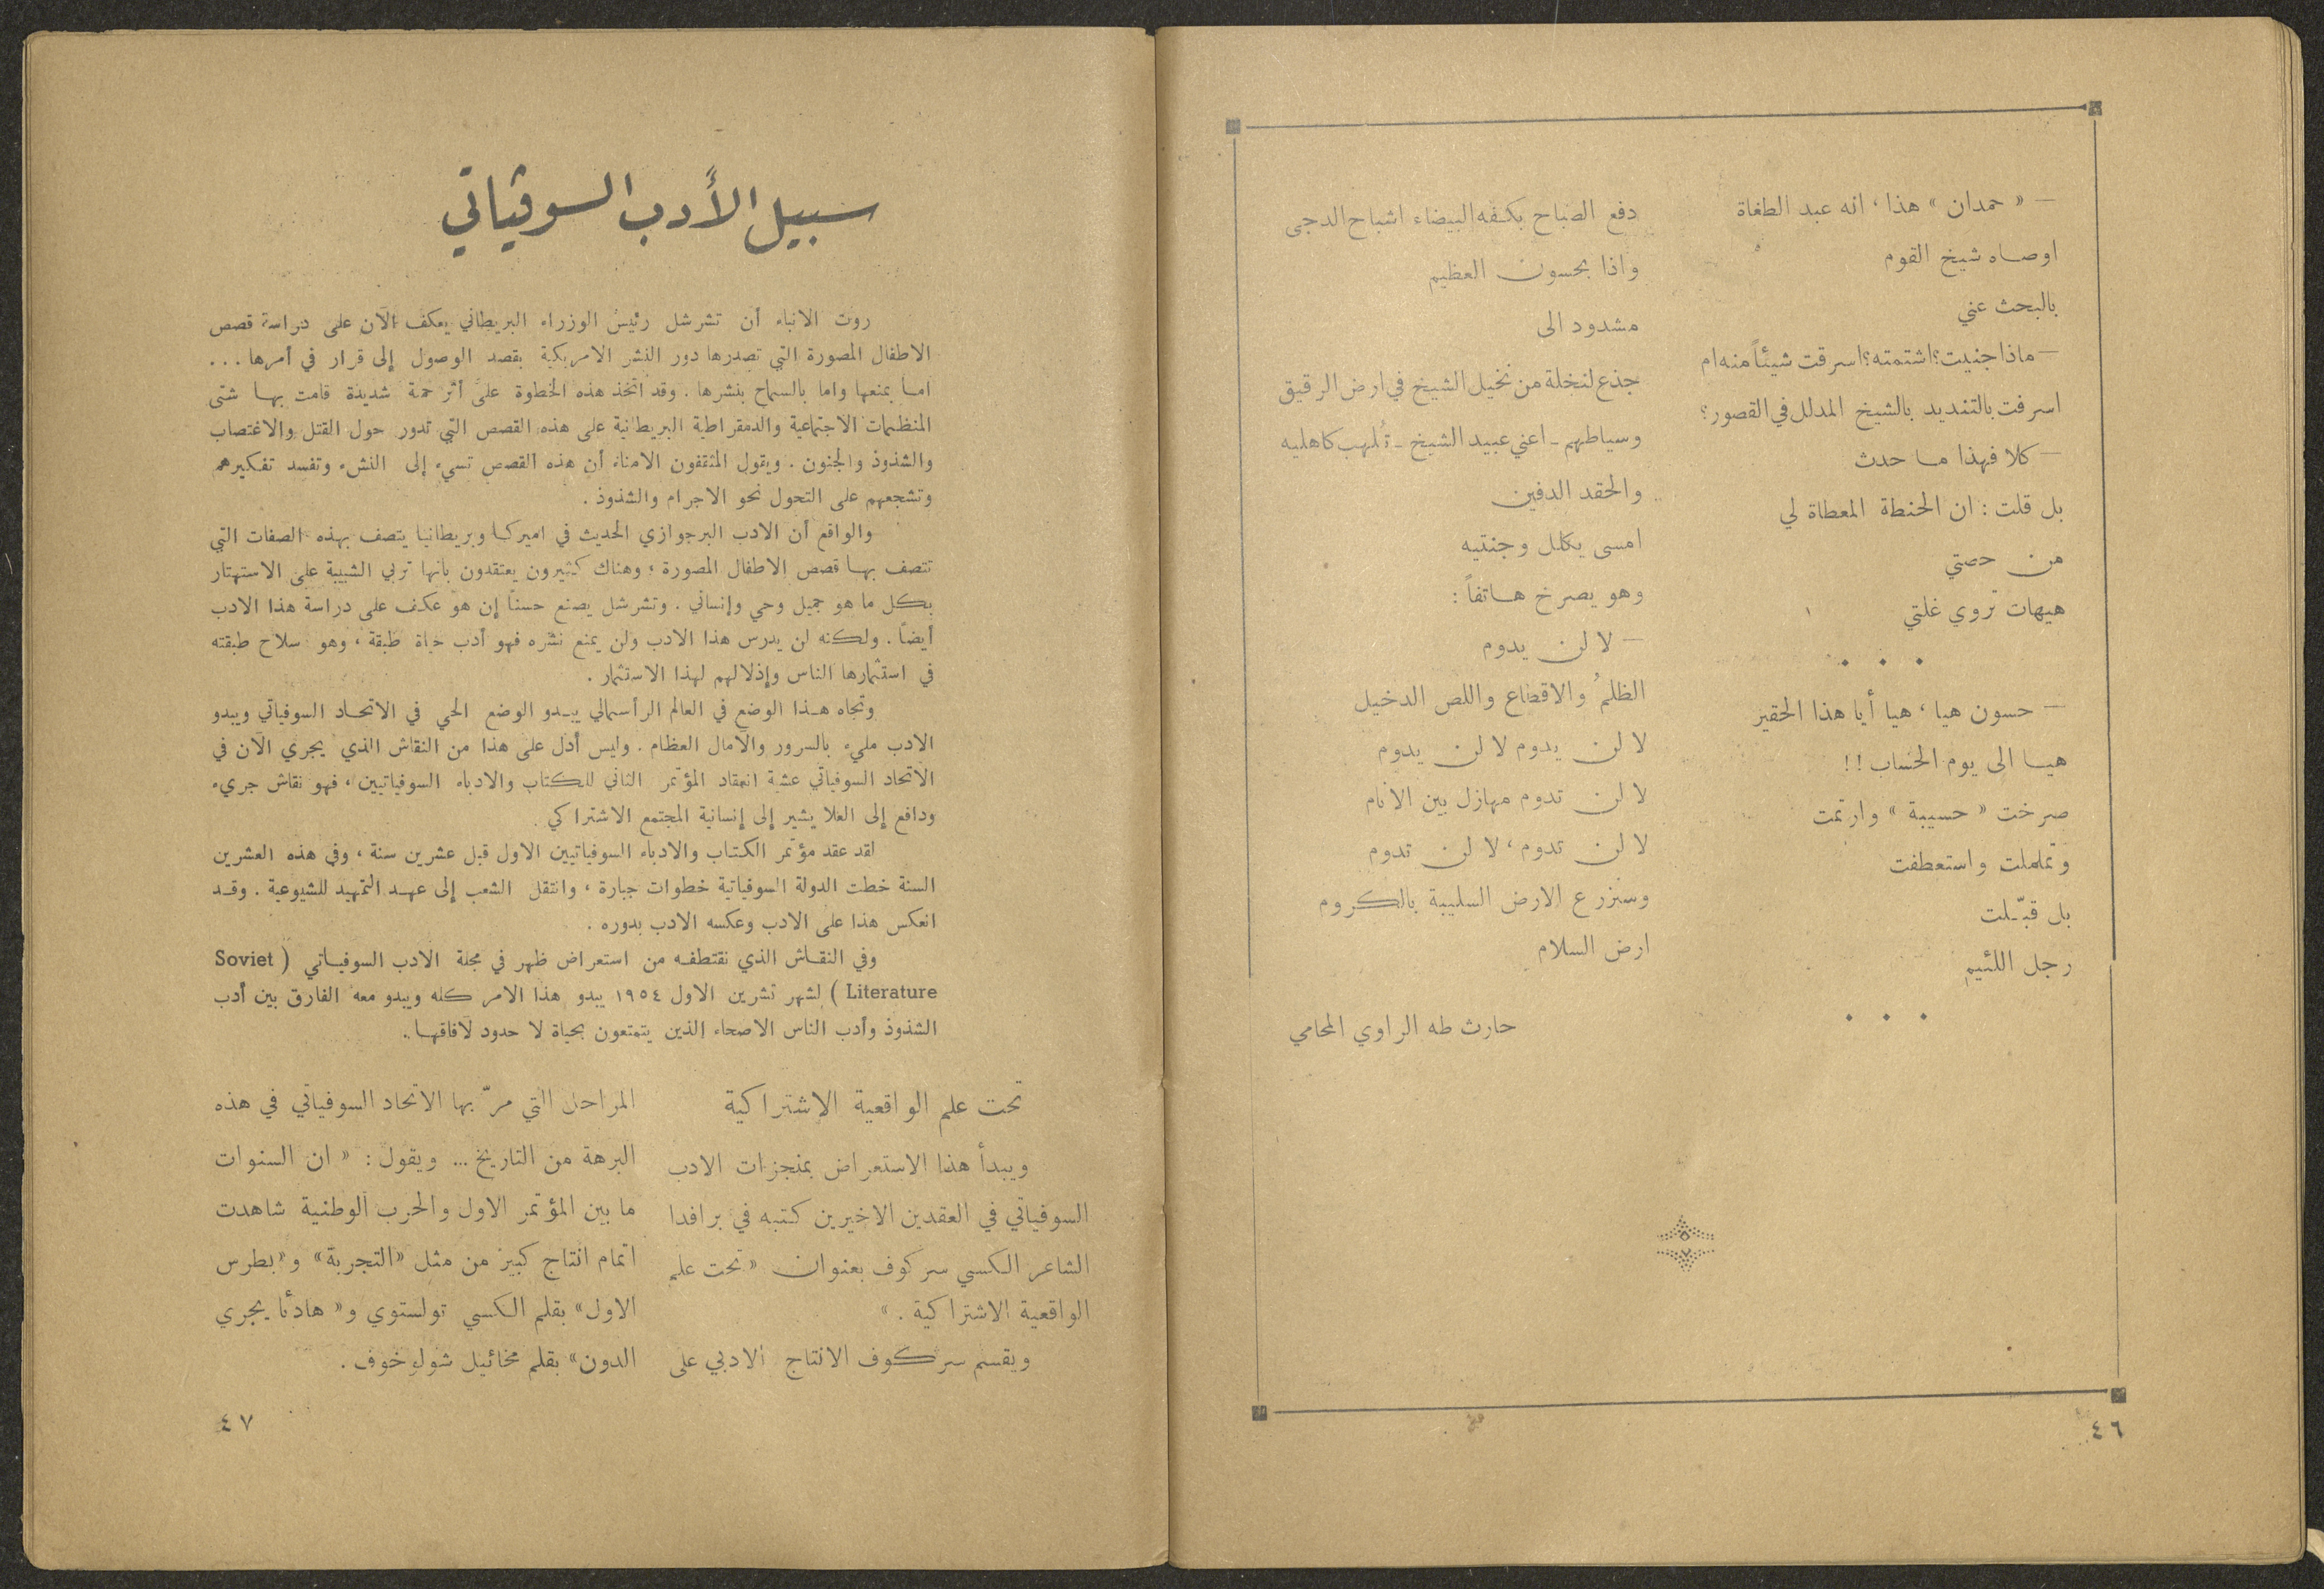 — « حمدان » هذا ، انه عبد الطغاة
اوصاه شيخ القوم
بالبحث عني
— ماذا جنيت؟ اشتمته؟ اسرقت شيئاً منه ام
اسرفت بالتنديد بالشيخ المدلل في القصور؟
— كلا فهذا ما حدث
بل قلت : ان الحنطة المعطاة لي
من حصتي
هيهات تروي غلتي
• • •
— حسون هيا ، هيا أيا هذا الحقير
هيا الى يوم الحساب !!
صرخت « حسيبة » وارتمت
وتململت واستعطفت
بل قبّلت
رجل اللئيم
• • •
دفع الصباح بكفه البيضاء اشباح الدجى
واذا بحسون العظيم
مشدود الى
جذع لنخلة من نخيل الشيخ في ارض الرقيق
وسياطهم - اعني عبيد الشيخ - تُلهب كاهليه
والحقد الدفين
امسى يكلل وجنتيه
وهو يصرخ هاتفاً :
— لا لن يدوم
الظلمُ والاقطاع واللص الدخيل
لا لن يدوم لا لن يدوم
لا لن تدوم مهازل بين الانام
لا لن تدوم ، لا لن تدوم
وسنزرع الارض السليبة بالكروم
ارض السلام
حارث طه الراوي المحامي
٤٦
سبيل الأدب السوڤياتي
روت الانباء أن تشرشل رئيس الوزراء البريطاني يعكف الآن على دراسة قصص
الاطفال المصورة التي تصدرها دور النشر الامريكية بقصد الوصول إلى قرار في أمرها ...
اما بمنعها واما بالسماح بنشرها . وقد اتخذ هذه الخطوة على أثر حملة شديدة قامت بها شتى
المنظمات الاجتماعية والدمقراطية البريطانية على هذه القصص التي تدور حول القتل والاغتصاب
والشذوذ والجنون . ويقول المثقفون الامناء أن هذه القصص تسيء إلى النشء وتفسد تفكيرهم
وتشجعهم على التحول نحو الاجرام والشذوذ .
والواقع أن الادب البرجوازي الحديث في اميركا وبريطانيا يتصف بهذه الصفات التي
تتصف بها قصص الاطفال المصورة ، وهناك كثيرون يعتقدون بأنها تربي الشبيبة على الاستهتار
بكل ما هو جميل وحي وإنساني . وتشرشل يصنع حسنًا إن هو عكف على دراسة هذا الادب
أيضًا . ولكنه لن يدرس هذا الادب ولن يمنع نشره فهو أدب حياة طبقة ، وهو سلاح طبقته
في استثمارها الناس وإذلالهم لهذا الاستثمار .
وتجاه هذا الوضع في العالم الرأسمالي يبدو الوضع الحي في الاتحاد السوفياتي ويبدو
الادب مليء بالسرور والآمال العظام . وليس أدل على هذا من النقاش الذي يجري الآن في
الاتحاد السوفياتي عشية انعقاد المؤتمر الثاني للكتاب والادباء السوفياتيين ، فهو نقاش جريء
ودافع إلى العلا يشير إلى إنسانية المجتمع الاشتراكي .
لقد عقد مؤتمر الكتاب والادباء السوفياتيين الاول قبل عشرين سنة ، وفي هذه العشرين
السنة خطت الدولة السوفياتية خطوات جبارة ، وانتقل الشعب إلى عهد التمهيد للشيوعية . وقد
انعكس هذا على الادب وعكسه الادب بدوره .
وفي النقاش الذي نقتطفه من استعراض ظهر في مجلة الادب السوفياتي ( Soviet
Literature ) لشهر تشرين الاول ١٩٥٤ يبدو هذا الامر كله ويبدو معه الفارق بين أدب
الشذوذ وأدب الناس الاصحاء الذين يتمتعون بحياة لا حدود لآفاقها .
تحت علم الواقعية الاشتراكية
ويبدأ هذا الاستعراض بمنجزات الادب
السوفياتي في العقدين الاخيرين كتبه في برافدا
الشاعر الكسي سركوف بعنوان « تحت علم
الواقعية الاشتراكية . »
ويقسم سركوف الانتاج الادبي على
المراحل التي مرّ بها الاتحاد السوفياتي في هذه
البرهة من التاريخ ... ويقول : « ان السنوات
ما بين المؤتمر الاول والحرب الوطنية شاهدت
اتمام انتاج كبير من مثل «التجربة» و«بطرس
الاول» بقلم الكسي تولستوي و« هادئا يجري
الدون» بقلم مخائيل شولوخوف .
٤٧